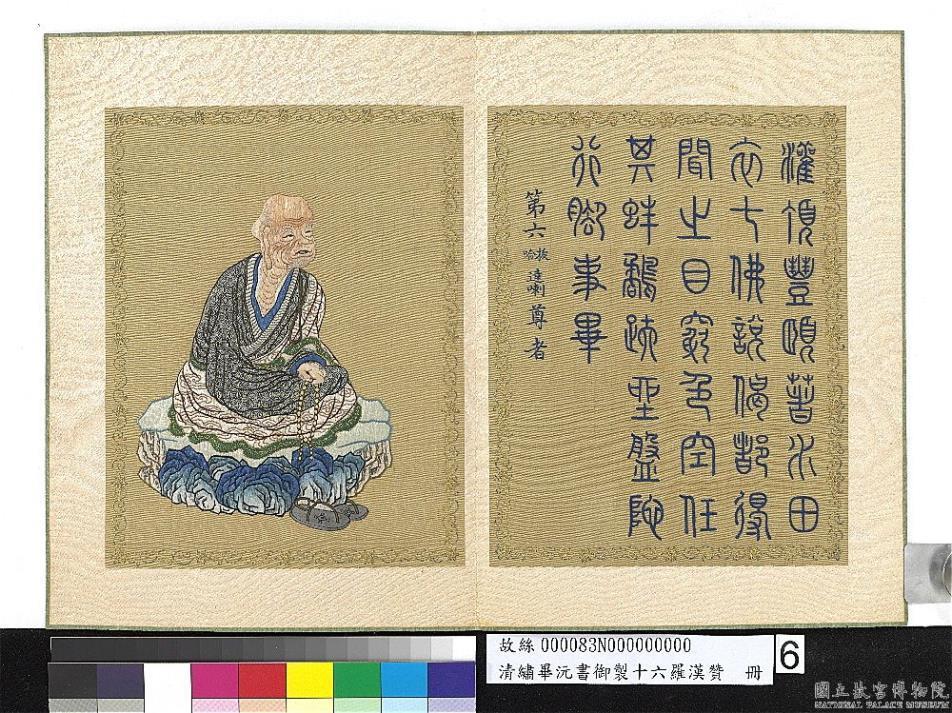 灌頂豐頤著水田
衣七佛說偈都得
聞之目窮色空任
其蚌鷸趺坐盤陁
行脚事畢
第六拔哈達喇尊者
故絲 000083N000000000
清繡畢沅書御製十六羅漢贊 冊
6
國立故宮博物院
NATIONAL PALACE MUSEUM